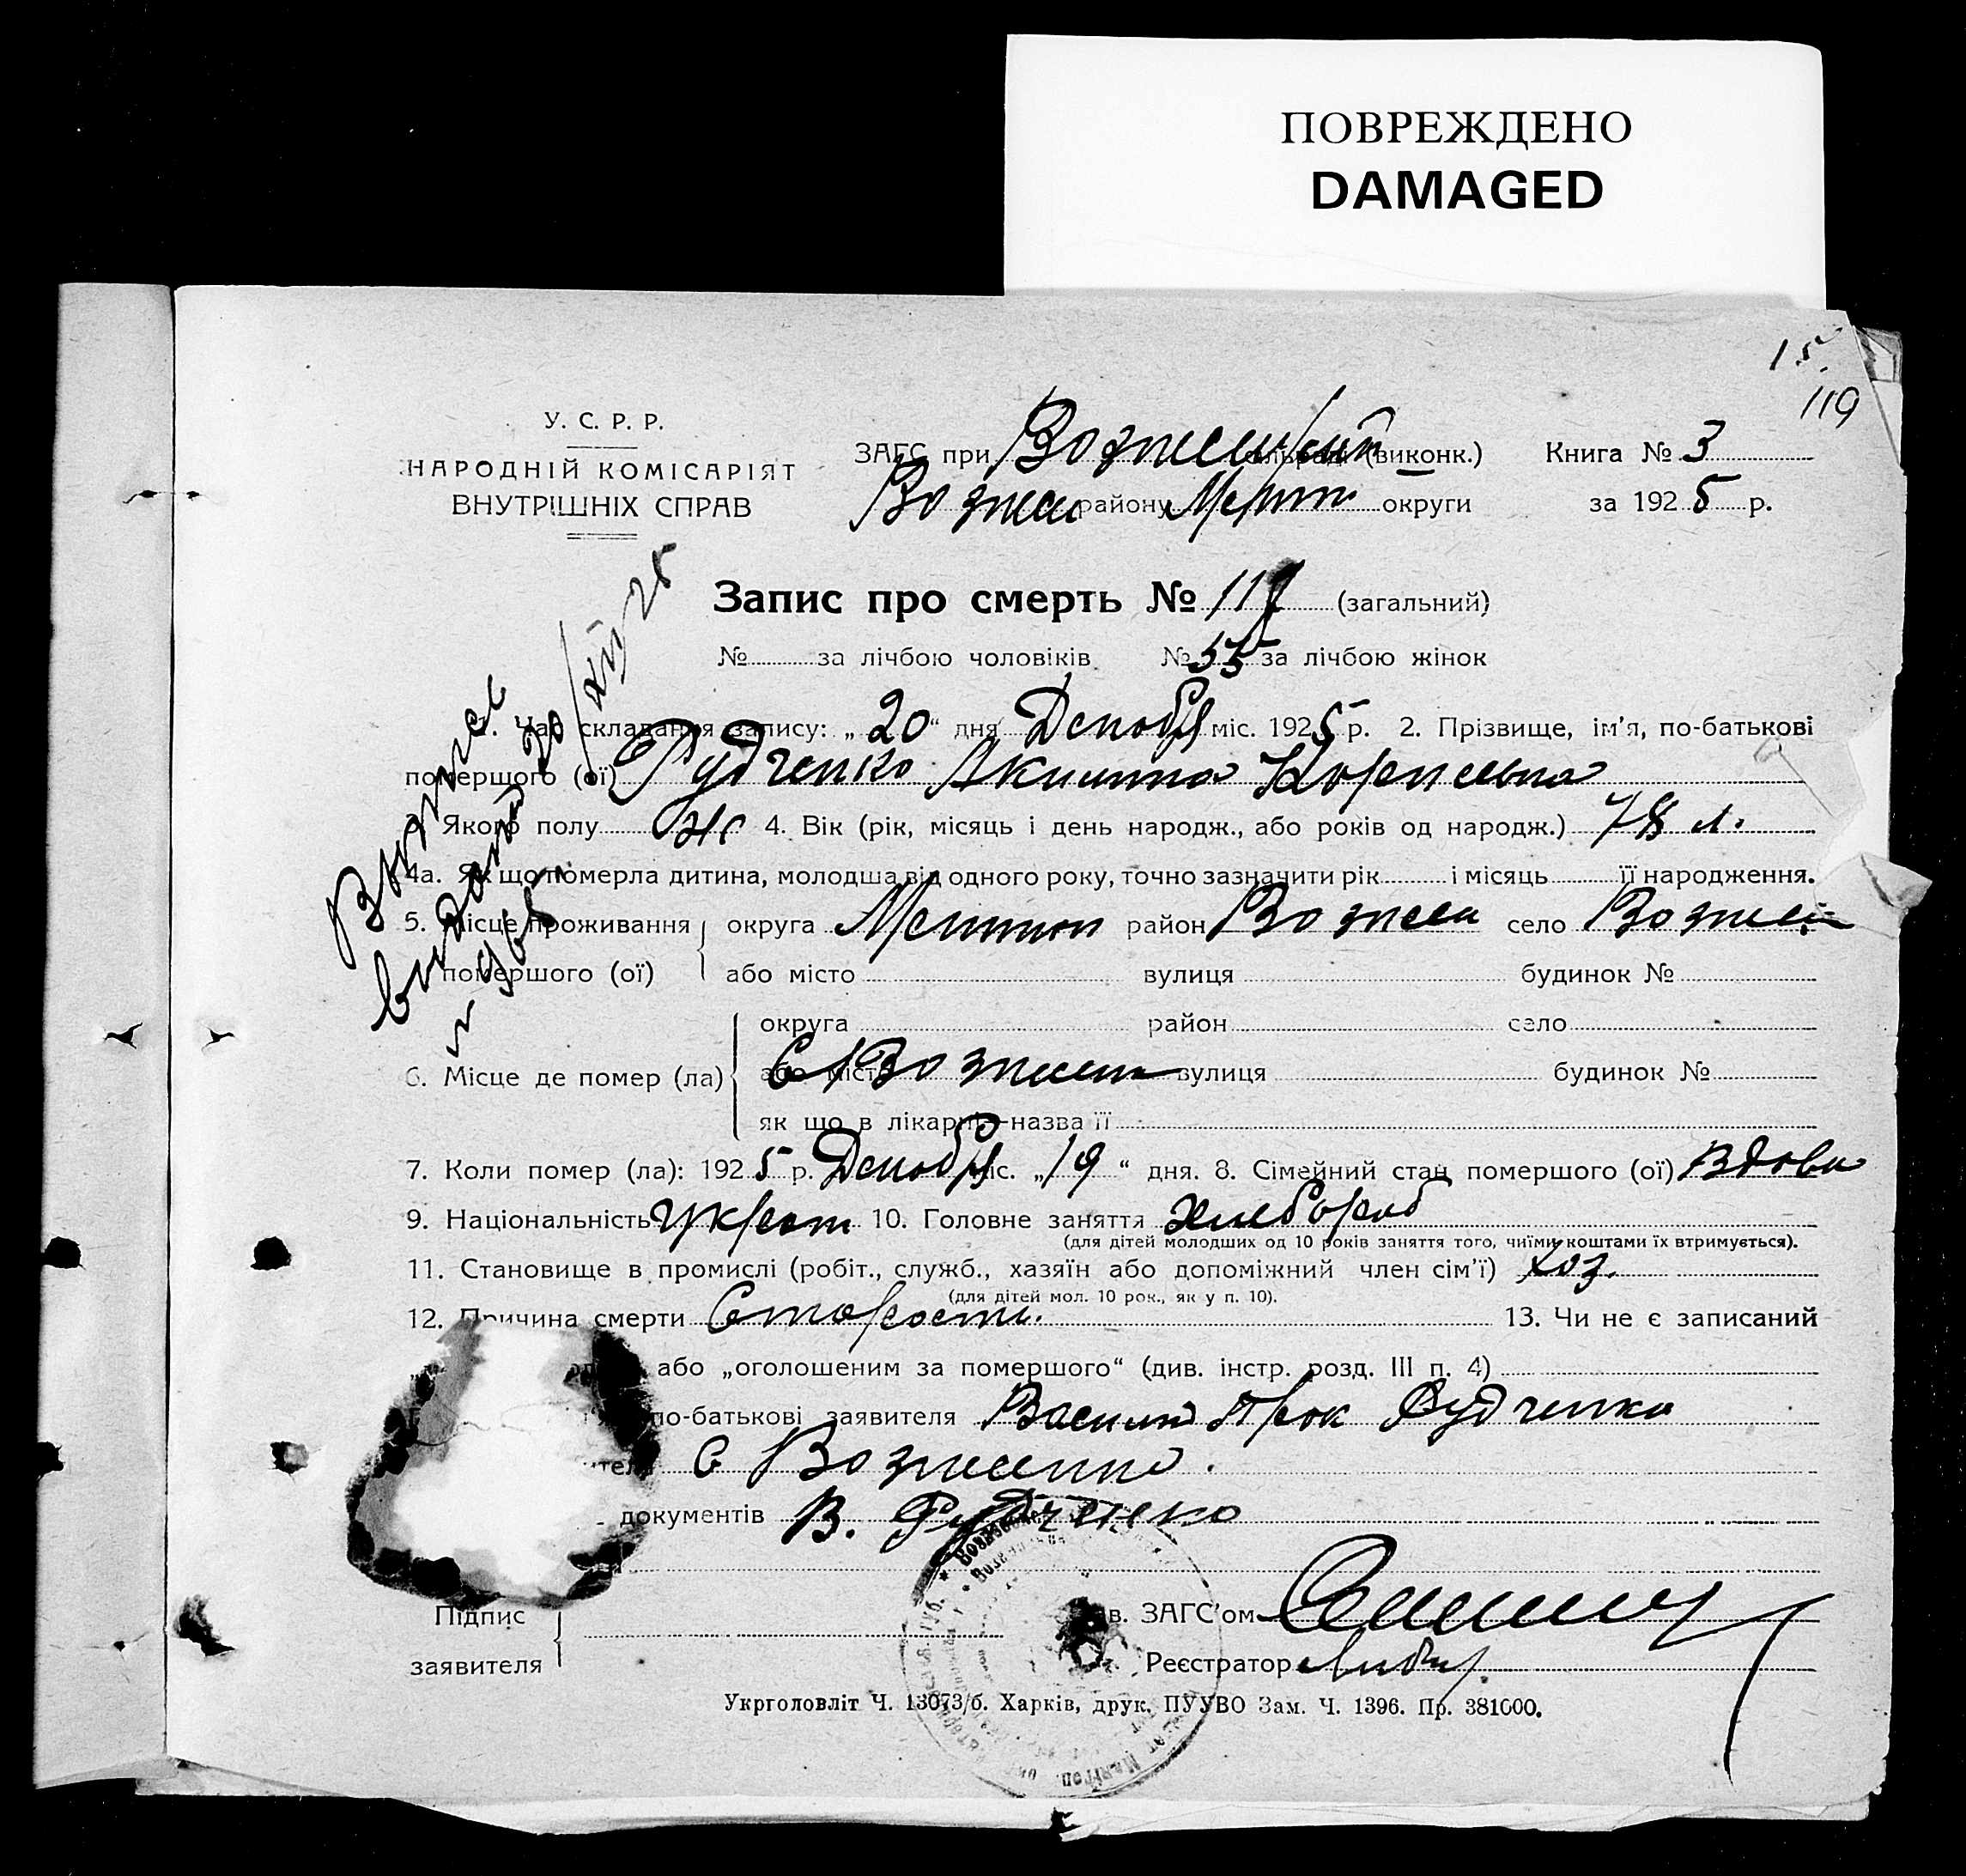 ПОВРЕЖДЕНО
DAMAGED
119
У. С. Р. Р.
НАРОДНІЙ КОМІСАРІЯТ
ВНУТРІШНІХ СПРАВ
ЗАГС при (виконк.) Книга № 3
району округи за 1925 р.
Запис про смерть № 117 (загальний)
№ за лічбою чоловіків № 55 за лічбою жінок
1. Час складання запису: „20“ дня Декабря міс. 1925 р. 2. Прізвище, ім'я, по-батькові
помершого (ої) Рудченко Акилина Корнеевна
3. Якого полу Ж 4. Вік (рік, місяць і день народж., або років од народж.) 78 л.
4а. Як що померла дитина, молодша від одного року, точно зазначити рік і місяць її народження.
5. Місце проживання округа район Вознес село Вознес
помершого (ої) або місто вулиця будинок №
округа район село
6. Місце де помер (ла) або місто С Вознесен вулиця будинок №
як що в лікарні—назва її
7. Коли помер (ла): 1925 р. Декабря міс. „19“ дня. 8. Сімейний стан помершого (ої) Вдова
9. Національність 10. Головне заняття Хлебороб
(для дітей молодших од 10 років заняття того, чиїми коштами їх втримується).
11. Становище в промислі (робіт., служб., хазяїн або допоміжний член сім'ї) Хоз.
(для дітей мол. 10 рок., як у п. 10).
12. Причина смерти Старости. 13. Чи не є записаний
або „оголошеним за помершого“ (див. інстр. розд. III п. 4)
по-батькові заявителя Василий Прок Рудченко
С Вознесенка.
документів В. Рудченко
Підпис
заявителя
Зав. ЗАГС'ом
Реєстратор
Укрголовліт Ч. 13073/б. Харків, друк. ПУУВО Зам. Ч. 1396. Пр. 381000.
Выпись
выдана 20/XII 25